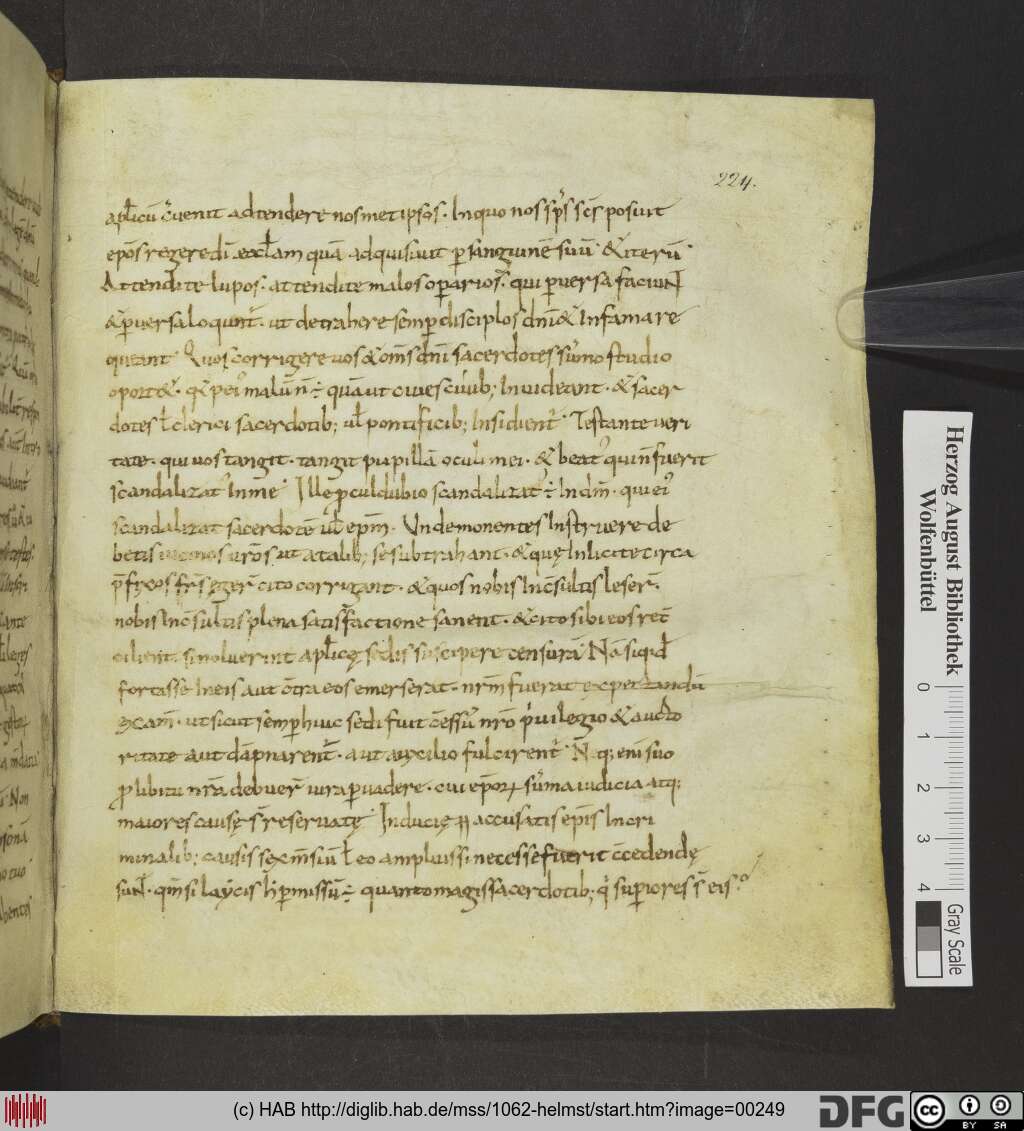 224.
apłicū ꝯuenit adtendere nosmetipsos. In quo nos sp̄s sc̄s posuit
ep̄os regere dī eccłam quā adquisiuit ꝑ sanguinē suū. & iterū
Attendite lupos. attendite malos oꝑarios. qui ꝑuersa faciuNt
& ꝑuersa loquunt̄. ut detrahere semꝑ disciplos dn̄i & Infamare
queant. Quos corrigere uos & om̄s dn̄i sacerdotes sūmo studio
oport&. malū n̄ ÷ quā ut ciues ciuib; Inuideant. & sacer
dotes ł clerici sacerdotib; uł pontificib; Insidient̄. Testante ueri
tate. qui uos tangit. tangit pupillā oculi mei. & beat᾽ qui n̄ fuerit
scandalizat᾽ In me. Ille ꝓculdubio scandalizat᾽ ÷ In dn̄o. qui ei᾽
scandalizat sacerdotē uł ep̄m. Unde monentes Instruere de
betis uicinos ur̄os ut a talib; se subtrahant. & quę Inlicite circa
p̄fixos fr̄s eger̄ cito corrigant. & quos nobis Inc̄sultis leser̄
nobis Inc̄sultis plena satisfactione sanent. & cito sibi eos rec̄
cilient. si noluerint apłicę sedis suscipere censurā. Nā siqd
fortasse In eis aut ꝯtra eos emerserat. nr̄m fuerat expectandū
excam̄. ut sicut semꝑ huic sedi fuit c̄cessū nr̄o p̄uilegio & aucto
ritate aut dāpnarent̄. aut auxilio fulcirent̄. N̄ q; eni suo
ꝓ libitu nr̄a debuer̄ iura ꝑuadere. cui ep̄oꝝ sūma iudicia atq;
maiores causę s̄ reseruatę. Inducię accusatis ep̄is In cri
minalib; causis sex m̄siū ł eo amplius si necesse fuerit c̄cedendę
suNt. qm̄ si laycis h̄ ꝑmissū ÷ quanto magis sacerdotib; q̄ superiores s̄ eis.
Herzog August Bibliothek
Wolfenbüttel
0 1 2 3 4
Gray Scale
(c) HAB http://diglib.hab.de/mss/1062-helmst/start.htm?image=00249
DFG
cc BY SA